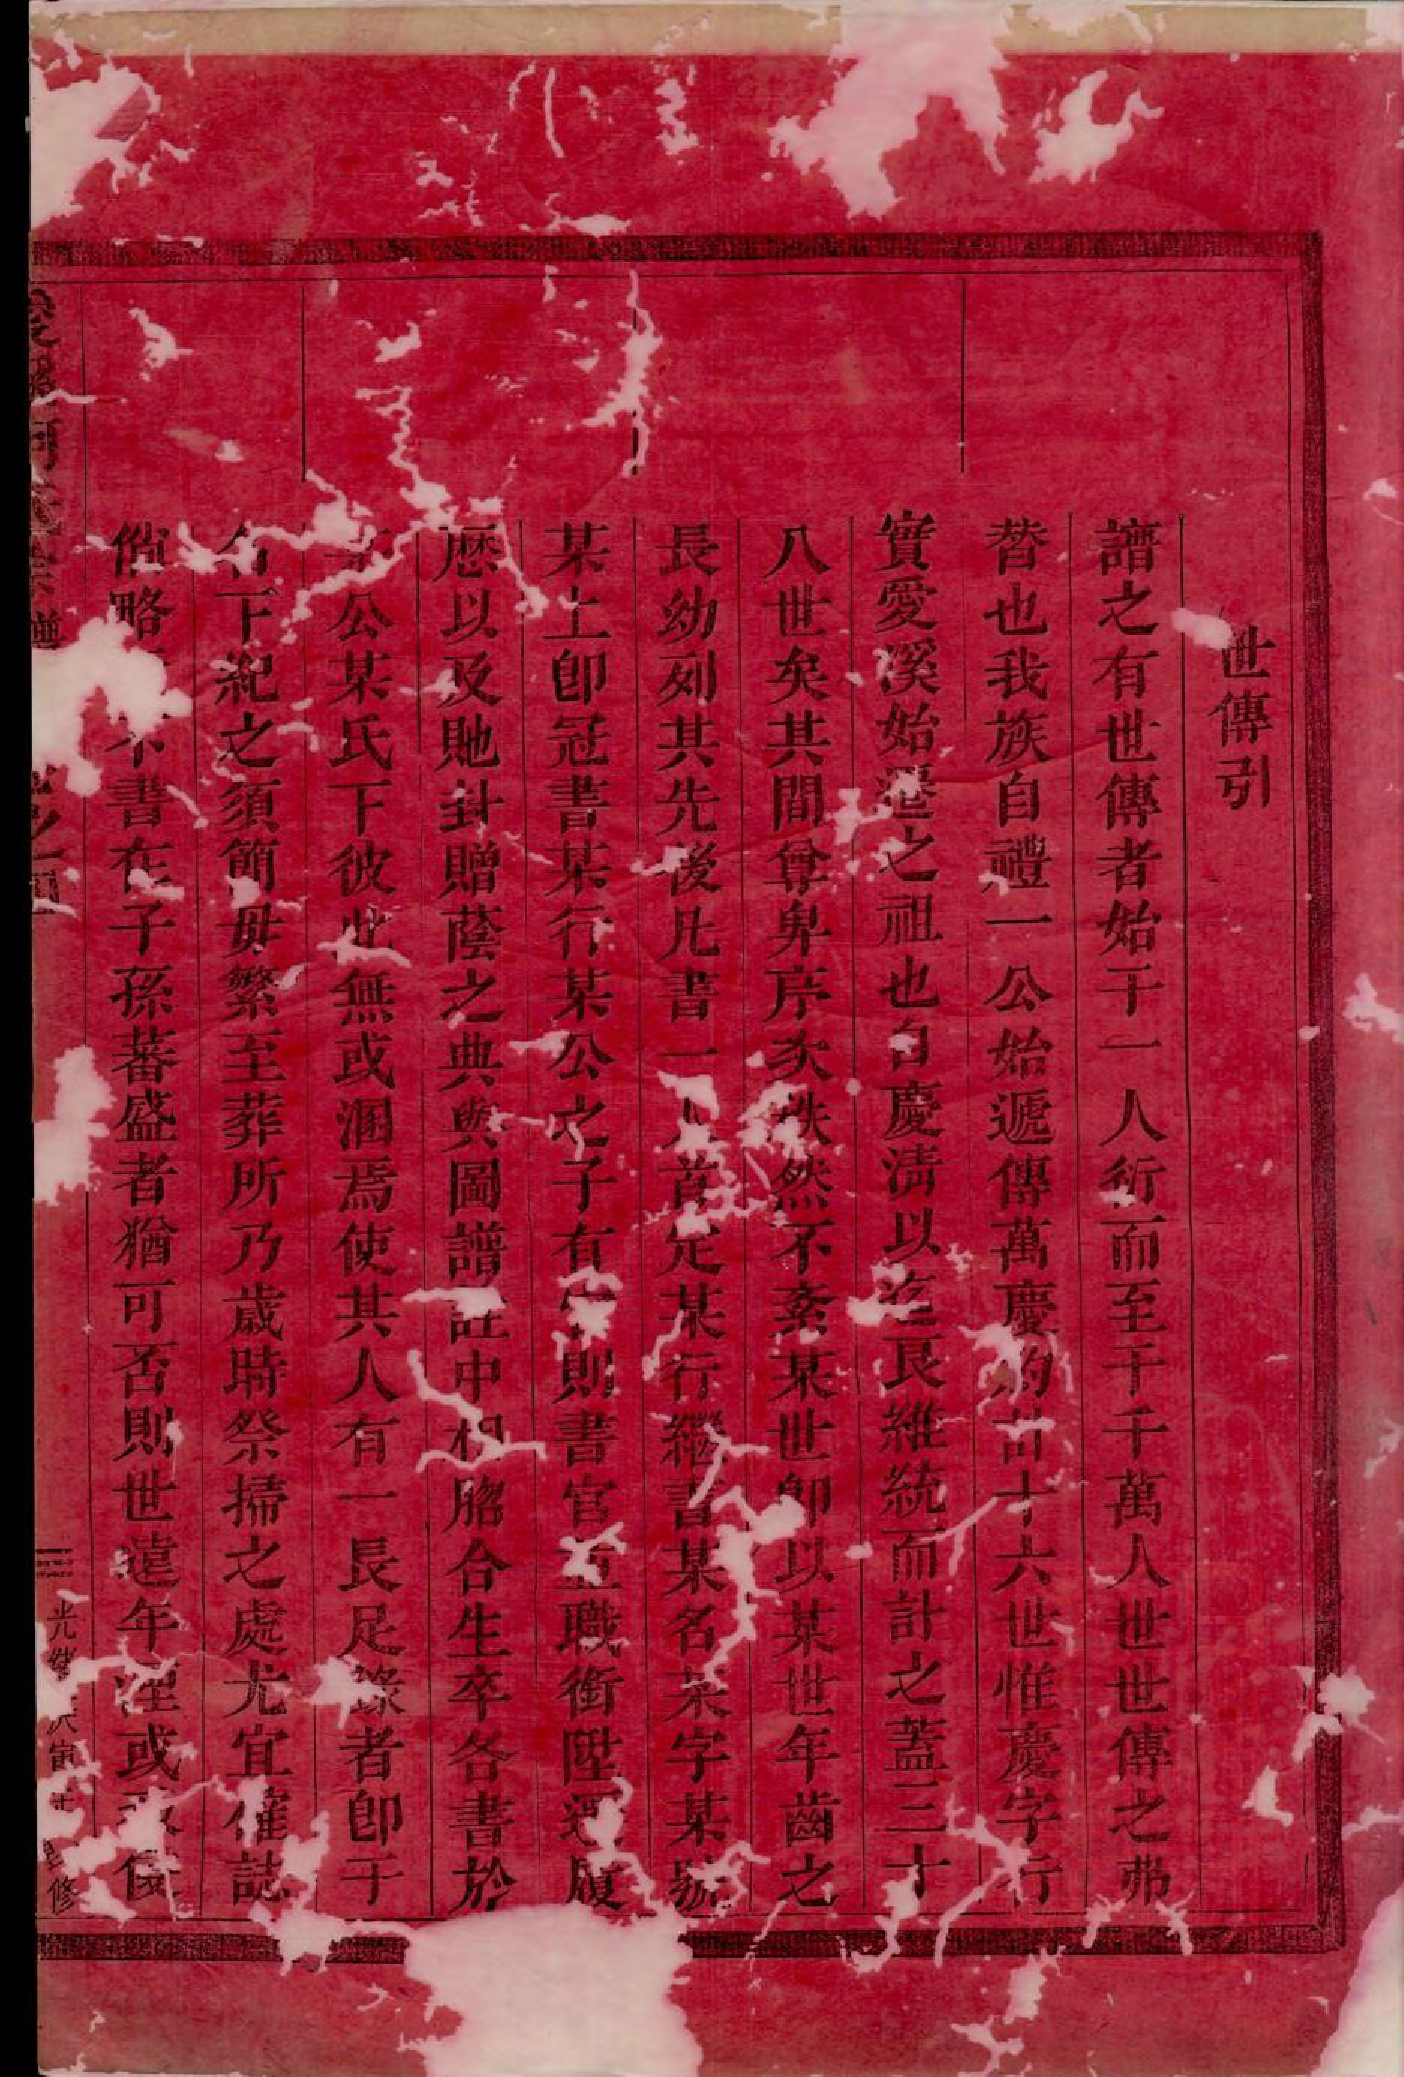 世傳引
譜之有世傳者始于一人衍而至千千萬人世世傳之弗
替也我族自禮一公始遞傳萬慶約計十六世惟慶字行
實愛溪始遷之祖也自慶淸以迄艮維統而計之蓋三十
八世矣其間尊卑序次秩然不紊某世卽以某世年齒之
長幼列其先後凡書一人首定某行繼書某名某字某號
某上卽冠書某行某公之子有官則書官並職銜陞遷履
歷以及貤封贈蔭之典與圖譜註中相脗合生卒各書於
某公某氏下彼此無或溷焉使其人有一長足錄者卽于
名下紀之須簡毋繁至葬所乃歲時祭掃之處尤宜確誌
倘略不書在子孫蕃盛者猶可否則世遠年湮或被侵
光緖庚寅修